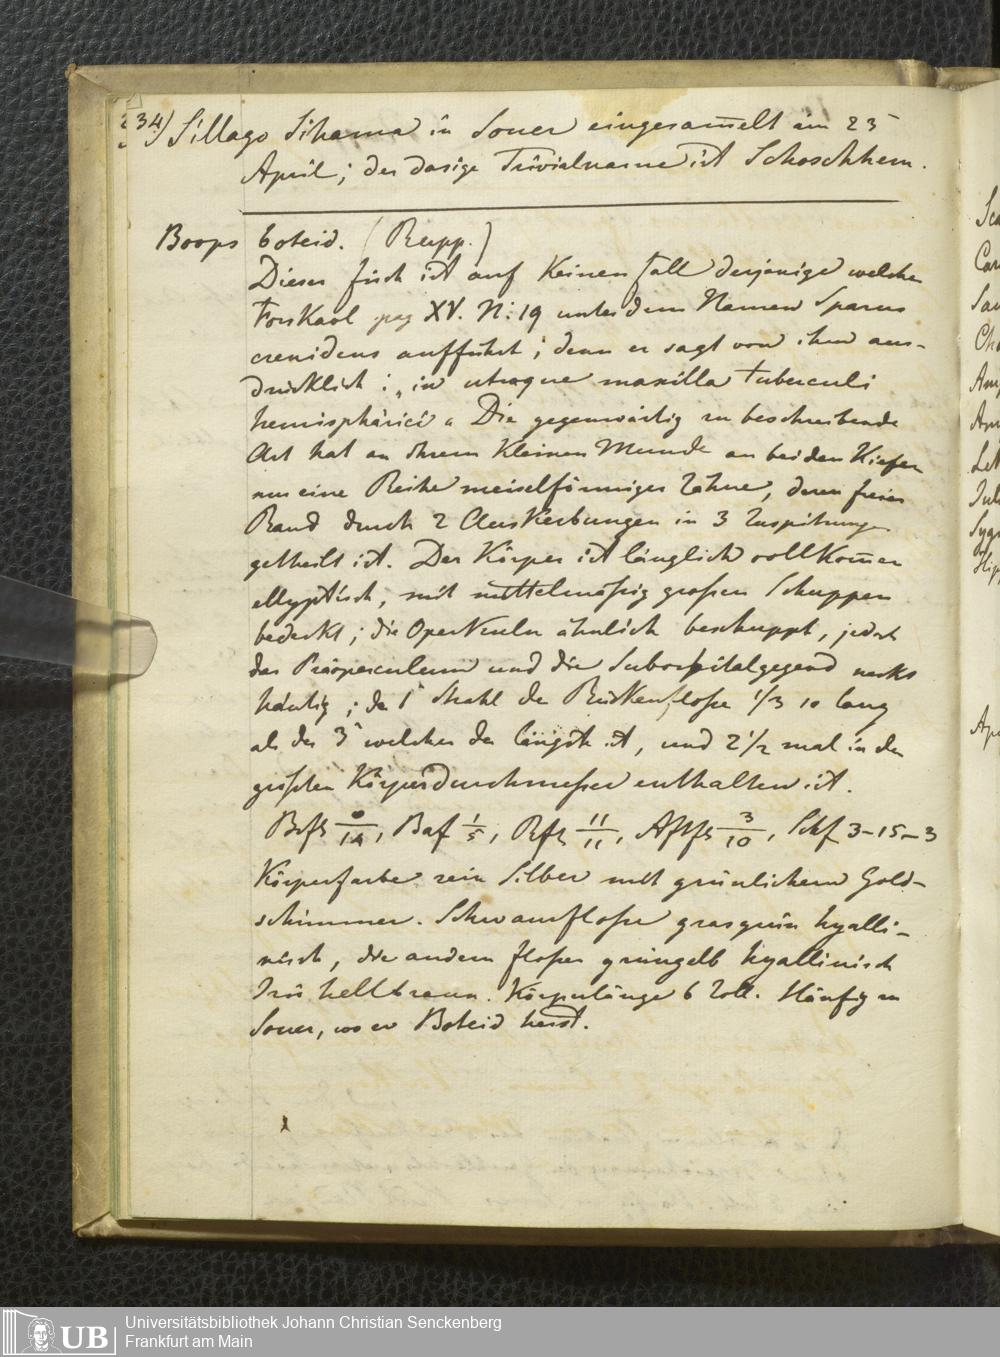 34) Sillago Sihama in Souer eingesam̅elt im 25
April; der dasige Trivialname ist Schoschhem.
Boops boteid. (Rupp.)
Dieser fisch ist auf Keinen fall derjenige welchen
Forskaol pag XV. N: 19 unter dem Namen Sparus
crenidens aufführt; denn er sagt von ihm aus-
drücklich: „in utroque maxilla tuberculi
hemisphärici“ Die gegenwärtig zu beschreibende
Art hat an ihrem Kleinen Munde an beiden Kiefer
nur eine Reihe meiselförmiger Zähne, deren freier
Rand durch 2 Auskerbungen in 3 Zuspitzungen
getheilt ist. Der Körper ist länglich vollkom̅en
ellyptisch, mit mittelmäßig großen Schuppen
bedeckt; die Operkeuln ähnlich beschuppt, jedoch
das Präoperculum und die Suborbitalgegend nackt
häutig; der 1 Strahl der Rückenfloße 1/3 so lang
als der 3 welcher der längste ist, und 2 1/2 mal in den
größten Körperdurchmeßer enthalten ist.
Brfß 0/14, Baf 1/5, Rfß 11/11, Aftfß 3/10, Schf 3-15-3
Körperfarbe rein Silber mit grünlichem Gold-
schimmer. Schwanzfloße grasgrün hyalli-
nisch, die andern floßen grüngelb hyallinisch
Iris hellbraun. Körperlänge 6 Zoll. Häufig in
Souer, wo er Boteid heist.
UB
Universitätsbibliothek Johann Christian Senckenberg
Frankfurt am Main